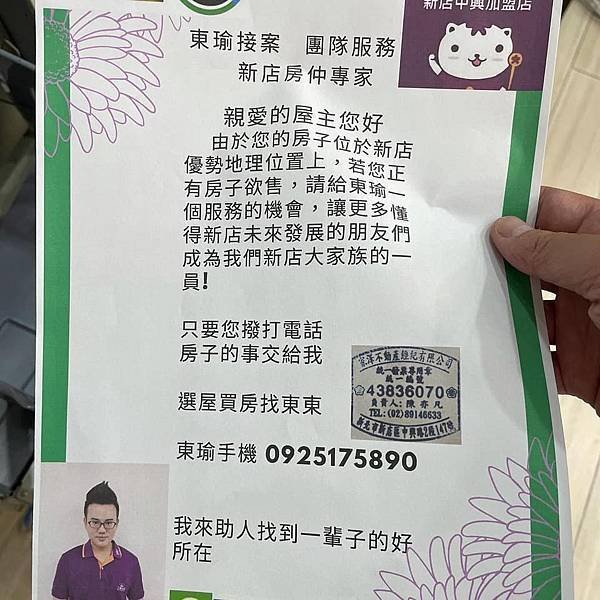 新店中興加盟店
東瑜接案 團隊服務
新店房仲專家
親愛的屋主您好
由於您的房子位於新店
優勢地理位置上，若您正
有房子欲售，請給東瑜一
個服務的機會，讓更多懂
得新店未來發展的朋友們
成為我們新店大家族的一
員!
只要您撥打電話
房子的事交給我
宏洋不動產經紀有限公司
統一發票專用章
統一編號
43836070
負責人: 陳奔凡
TEL:(02)89146633
新北市新店區中興路2段147號
選屋買房找東東
東瑜手機 0925175890
我來助人找到一輩子的好
所在